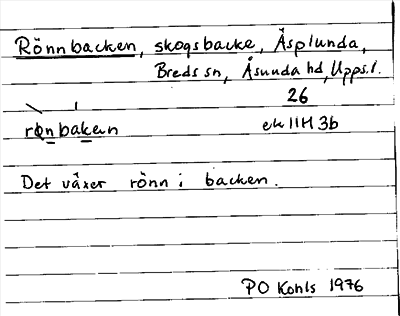 Rönnbacken, skogsbacke, Äsplunda,
Breds sn, Åsunda hd, Upps.l.
26
rönbaken ek 11H 3b
Det växer rönn i backen.
PO Kohls 1976